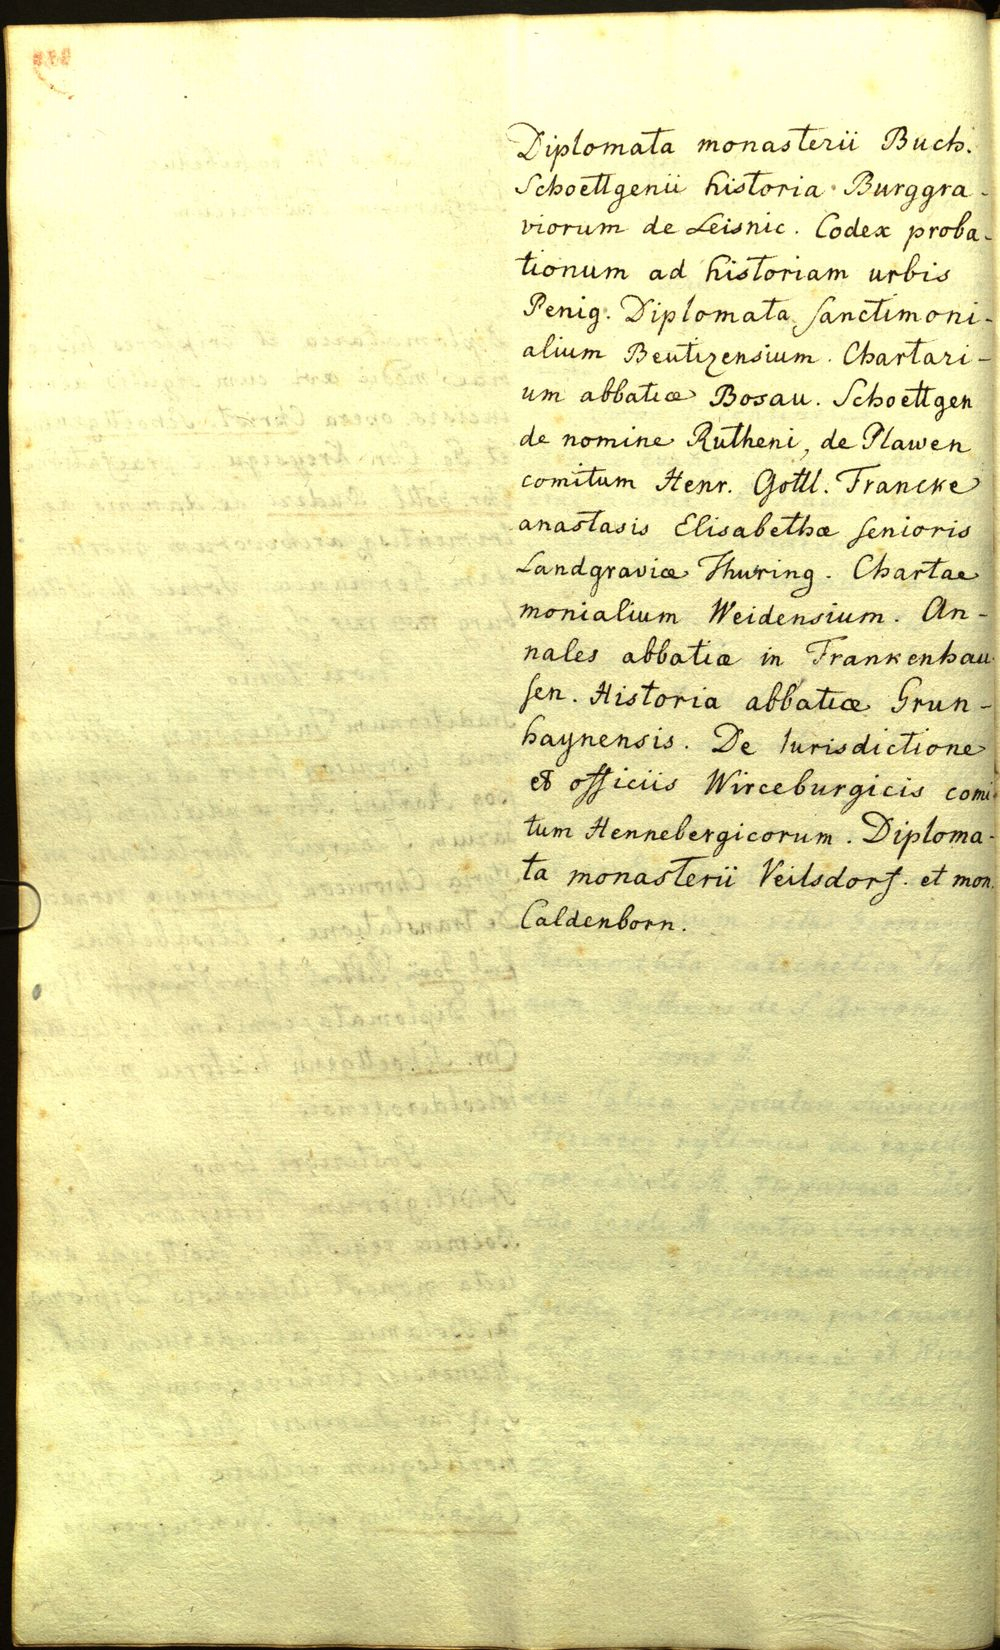 Diplomata monasterii Buch.
Schoettgenii historia Burggra-
viorum de Leisnic. Codex proba-
tionum ad historiam urbis
Penig. Diplomata sanctimoni-
alium Beutizensium. Chartari-
um abbatiæ Bosau. Schoettgen
de nomine Rutheni, de Plawen
comitum Henr. Gottl. Francke
anastasis Elisabethæ senioris
Landgraviæ Thuring. Chartae
monialium Weidensium. An-
nales abbatiæ in Frankenhau
sen. Historia abbatiæ Grun-
haynensis. De Iurisdictione
et officiis Wirceburgicis comi
tum Hennebergicorum. Diploma-
ta monasterii Veilsdorf. et mon.
Caldenborn.